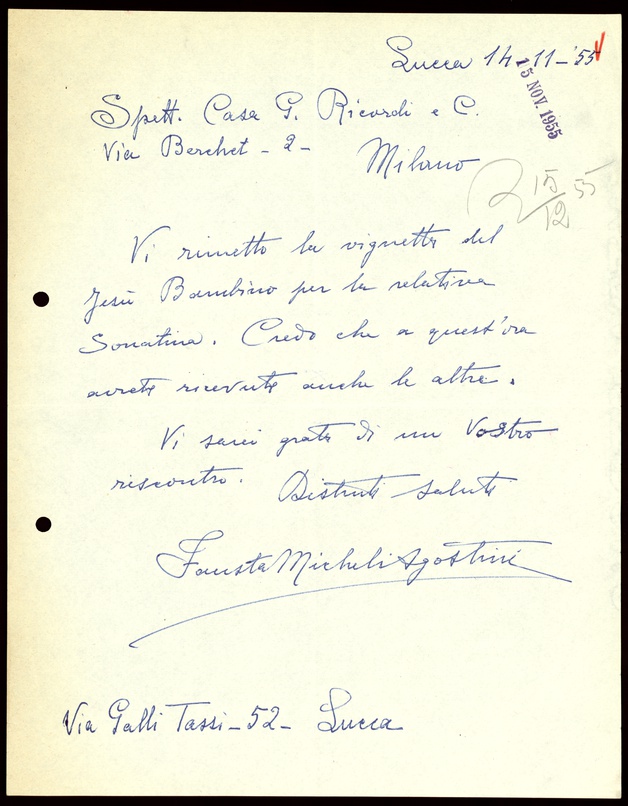 Lucca 14-11-'55
15 NOV. 1955
Spett. Casa G. Ricordi e C.
Via Berchet - 2 -
Milano
15/12 55
Vi rimetto la vignetta del
Jesù Bambino per la relativa
Sonatina. Credo che a quest'ora
avrete ricevute anche le altre.
Vi sarei grata di un Vostro
riscontro. Distinti saluti
Fausta Micheli Agostini
Via Galli Tassi - 52 - Lucca